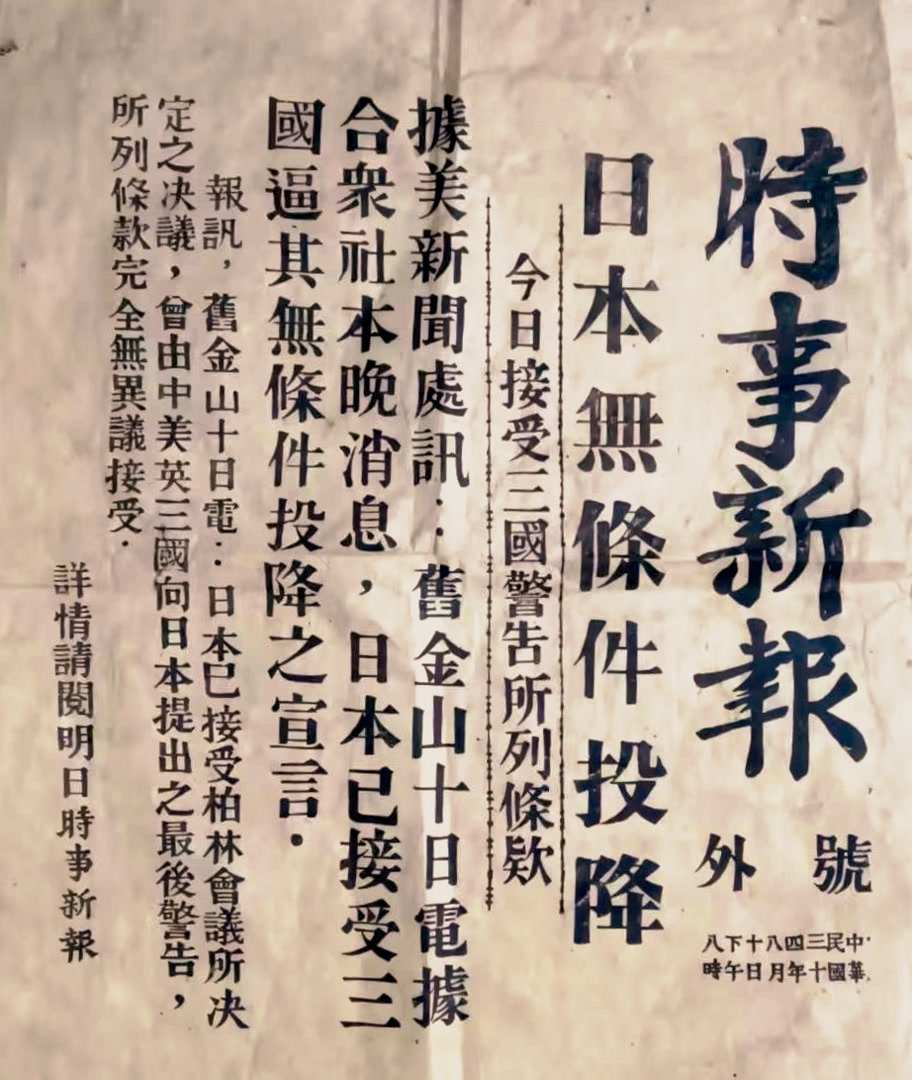 時事新報
號外
中華民國三十四年八月十日下午八時
日本無條件投降
今日接受三國警告所列條欵
據美新聞處訊：舊金山十日電據
合衆社本晚消息，日本已接受三
國逼其無條件投降之宣言．
報訊，舊金山十日電：日本已接受柏林會議所决
定之决議，曾由中美英三國向日本提出之最後警告，
所列條款完全無異議接受．
詳情請閱明日時事新報